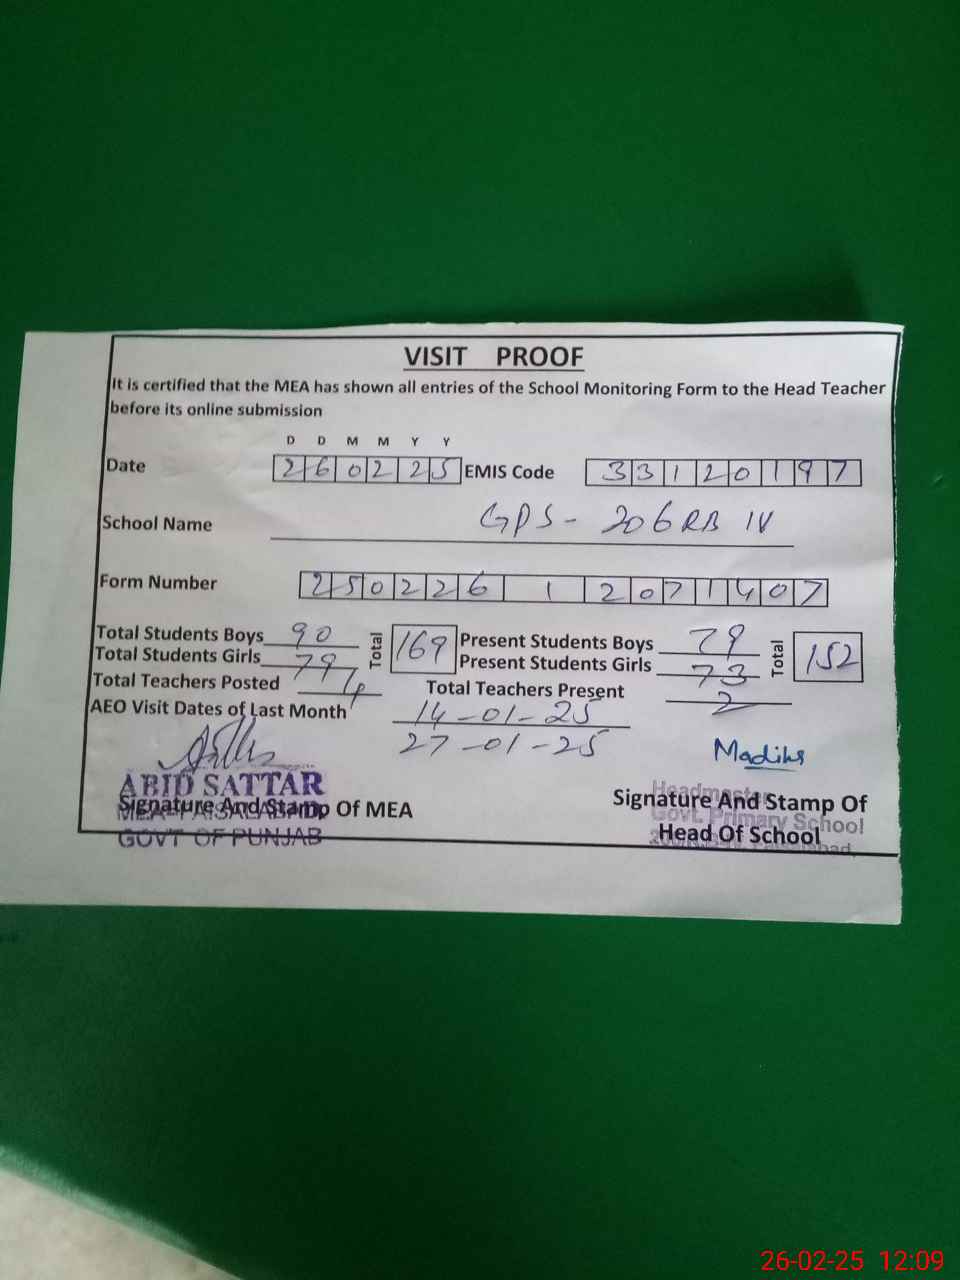 VISIT PROOF
It is certified that the MEA has shown all entries of the School Monitoring Form to the Head Teacher
before its online submission
D D M M Y Y
Date 260225 EMIS Code 33120197
School Name GPS - 206 RB IV
Form Number 250226 1 2071407
Total Students Boys 90 Total 169 Present Students Boys 79 Total 152
Total Students Girls 79 Present Students Girls 73
Total Teachers Posted 4 Total Teachers Present 2
AEO Visit Dates of Last Month 14-01-25
27-01-25
Madiha
ABID SATTAR
MEA-FAISALABAD
Signature And Stamp Of MEA
GOVT OF PUNJAB
Headmaster
Govt. Primary School
Signature And Stamp Of
Head Of School
26-02-25 12:09